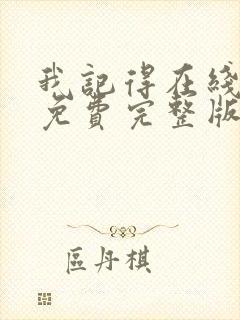 我記得在綫
免費完整版
區丹棋